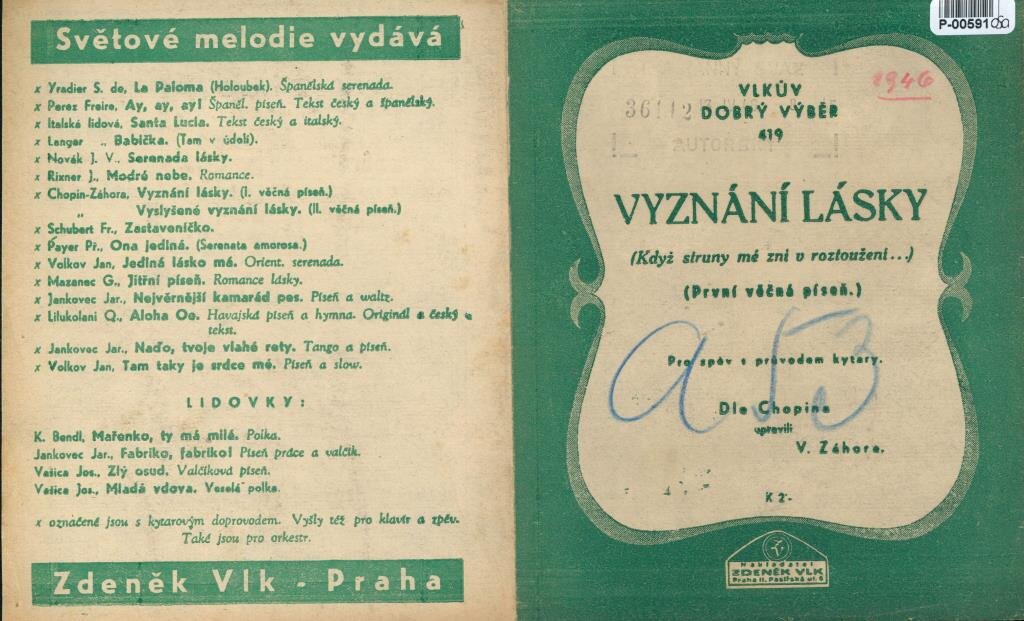 Světové melodie vydává
x Yradier S. de, La Paloma (Holoubek). Španělská serenada.
x Perez Freire, Ay, ay, ay! Španěl. píseň. Tekst český a španělský.
x Italská lidová, Santa Lucia. Tekst český a italský.
x Langer „ Babička. (Tam v údolí).
x Novák J. V., Serenada lásky.
x Rixner J., Modré nebe. Romance.
x Chopin-Záhora, Vyznání lásky. (I. věčná píseň.)
„ Vyslyšené vyznání lásky. (II. věčná píseň.)
x Schubert Fr., Zastaveníčko.
x Payer Př., Ona jediná. (Serenata amorosa.)
x Volkov Jan, Jediná lásko má. Orient. serenada.
x Mazanec G., Jitřní píseň. Romance lásky.
x Jankovec Jar., Nejvěrnější kamarád pes. Píseň a waltz.
x Liliukolani Q., Aloha Oe. Havajská píseň a hymna. Originál a český
tekst.
x Jankovec Jar., Naďo, tvoje vlahé rety. Tango a píseň.
x Volkov Jan, Tam taky je srdce mé. Píseň a slow.
LIDOVKY:
K. Bendl, Mařenko, ty má milá. Polka.
Jankovec Jar., Fabriko, fabriko! Píseň práce a valčík.
Vašica Jos., Zlý osud. Valčíková píseň.
Vašica Jos., Mladá vdova. Veselá polka.
x označené jsou s kytarovým doprovodem. Vyšly též pro klavír a zpěv.
Také jsou pro orkestr.
Zdeněk Vlk - Praha
P-005910
1946
VLKŮV
36112
DOBRÝ VÝBĚR
419
VYZNÁNÍ LÁSKY
(Když struny mé zní v roztoužení...)
(První věčná píseň.)
a 53
Pro zpěv s průvodem kytary.
Dle Chopina
upravil
V. Záhora.
K 2·-
Nakladatel
ZDENĚK VLK
Praha II. Pasířská ul. 6